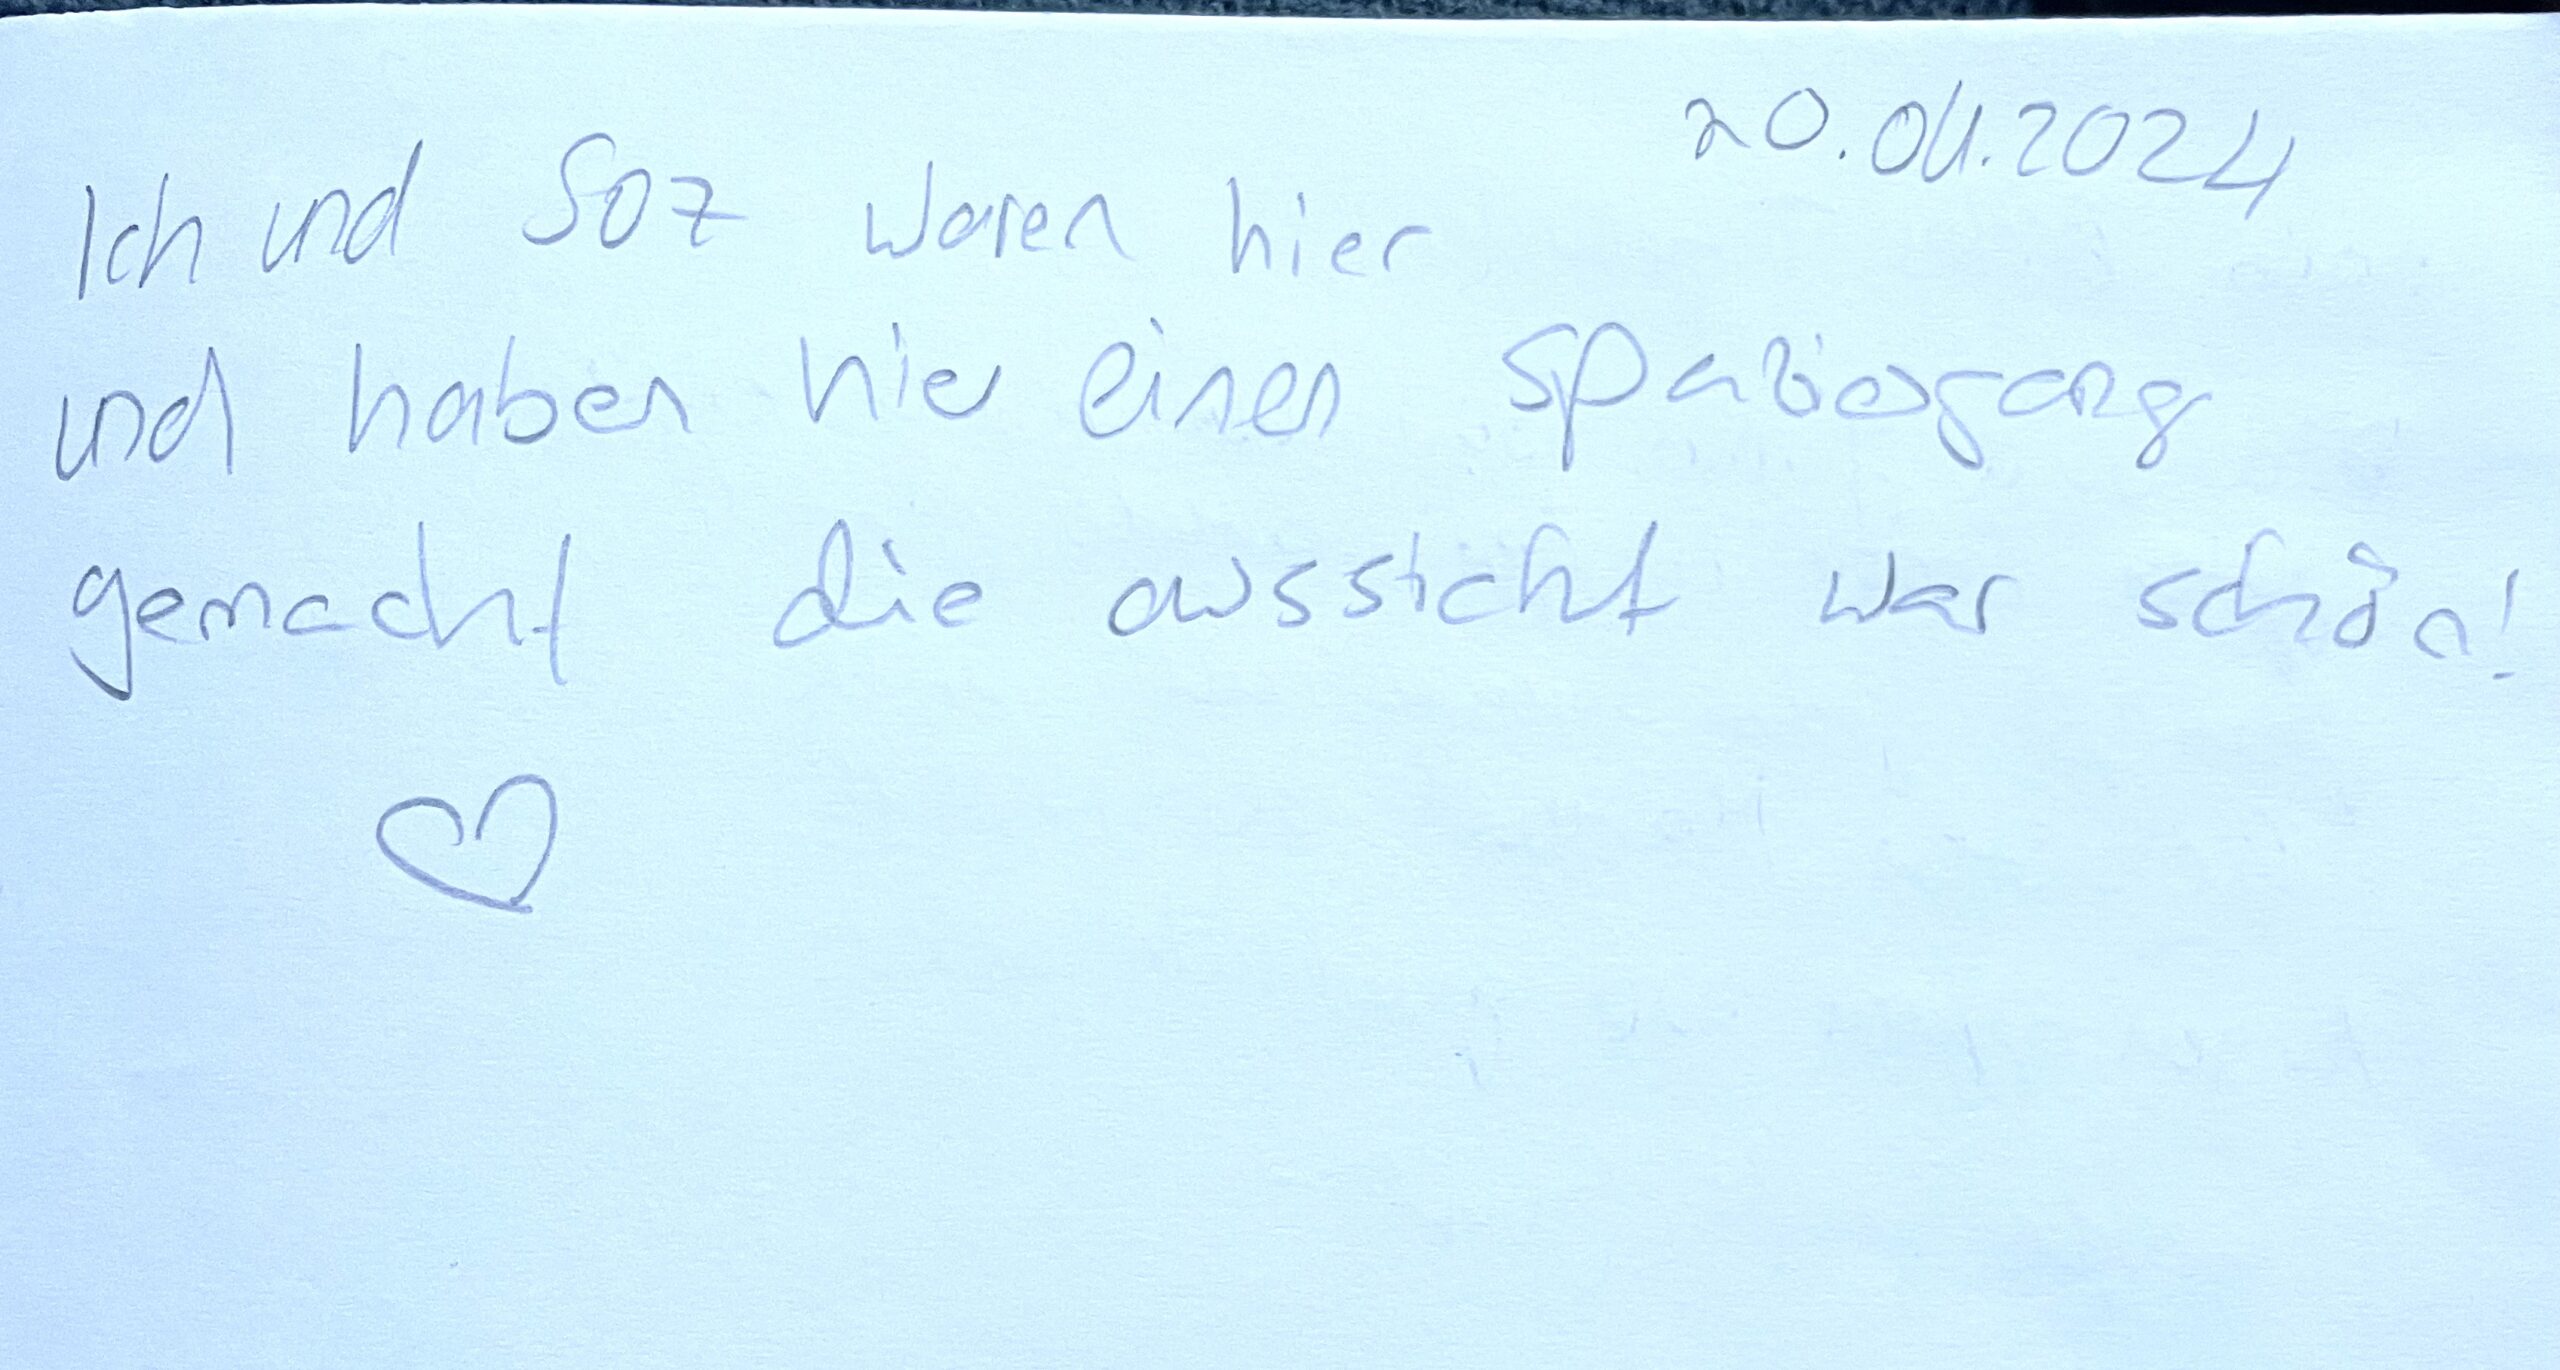 20.04.2024
Ich und Soz waren hier
und haben hier einen spaziergang
gemacht die aussicht war schön!